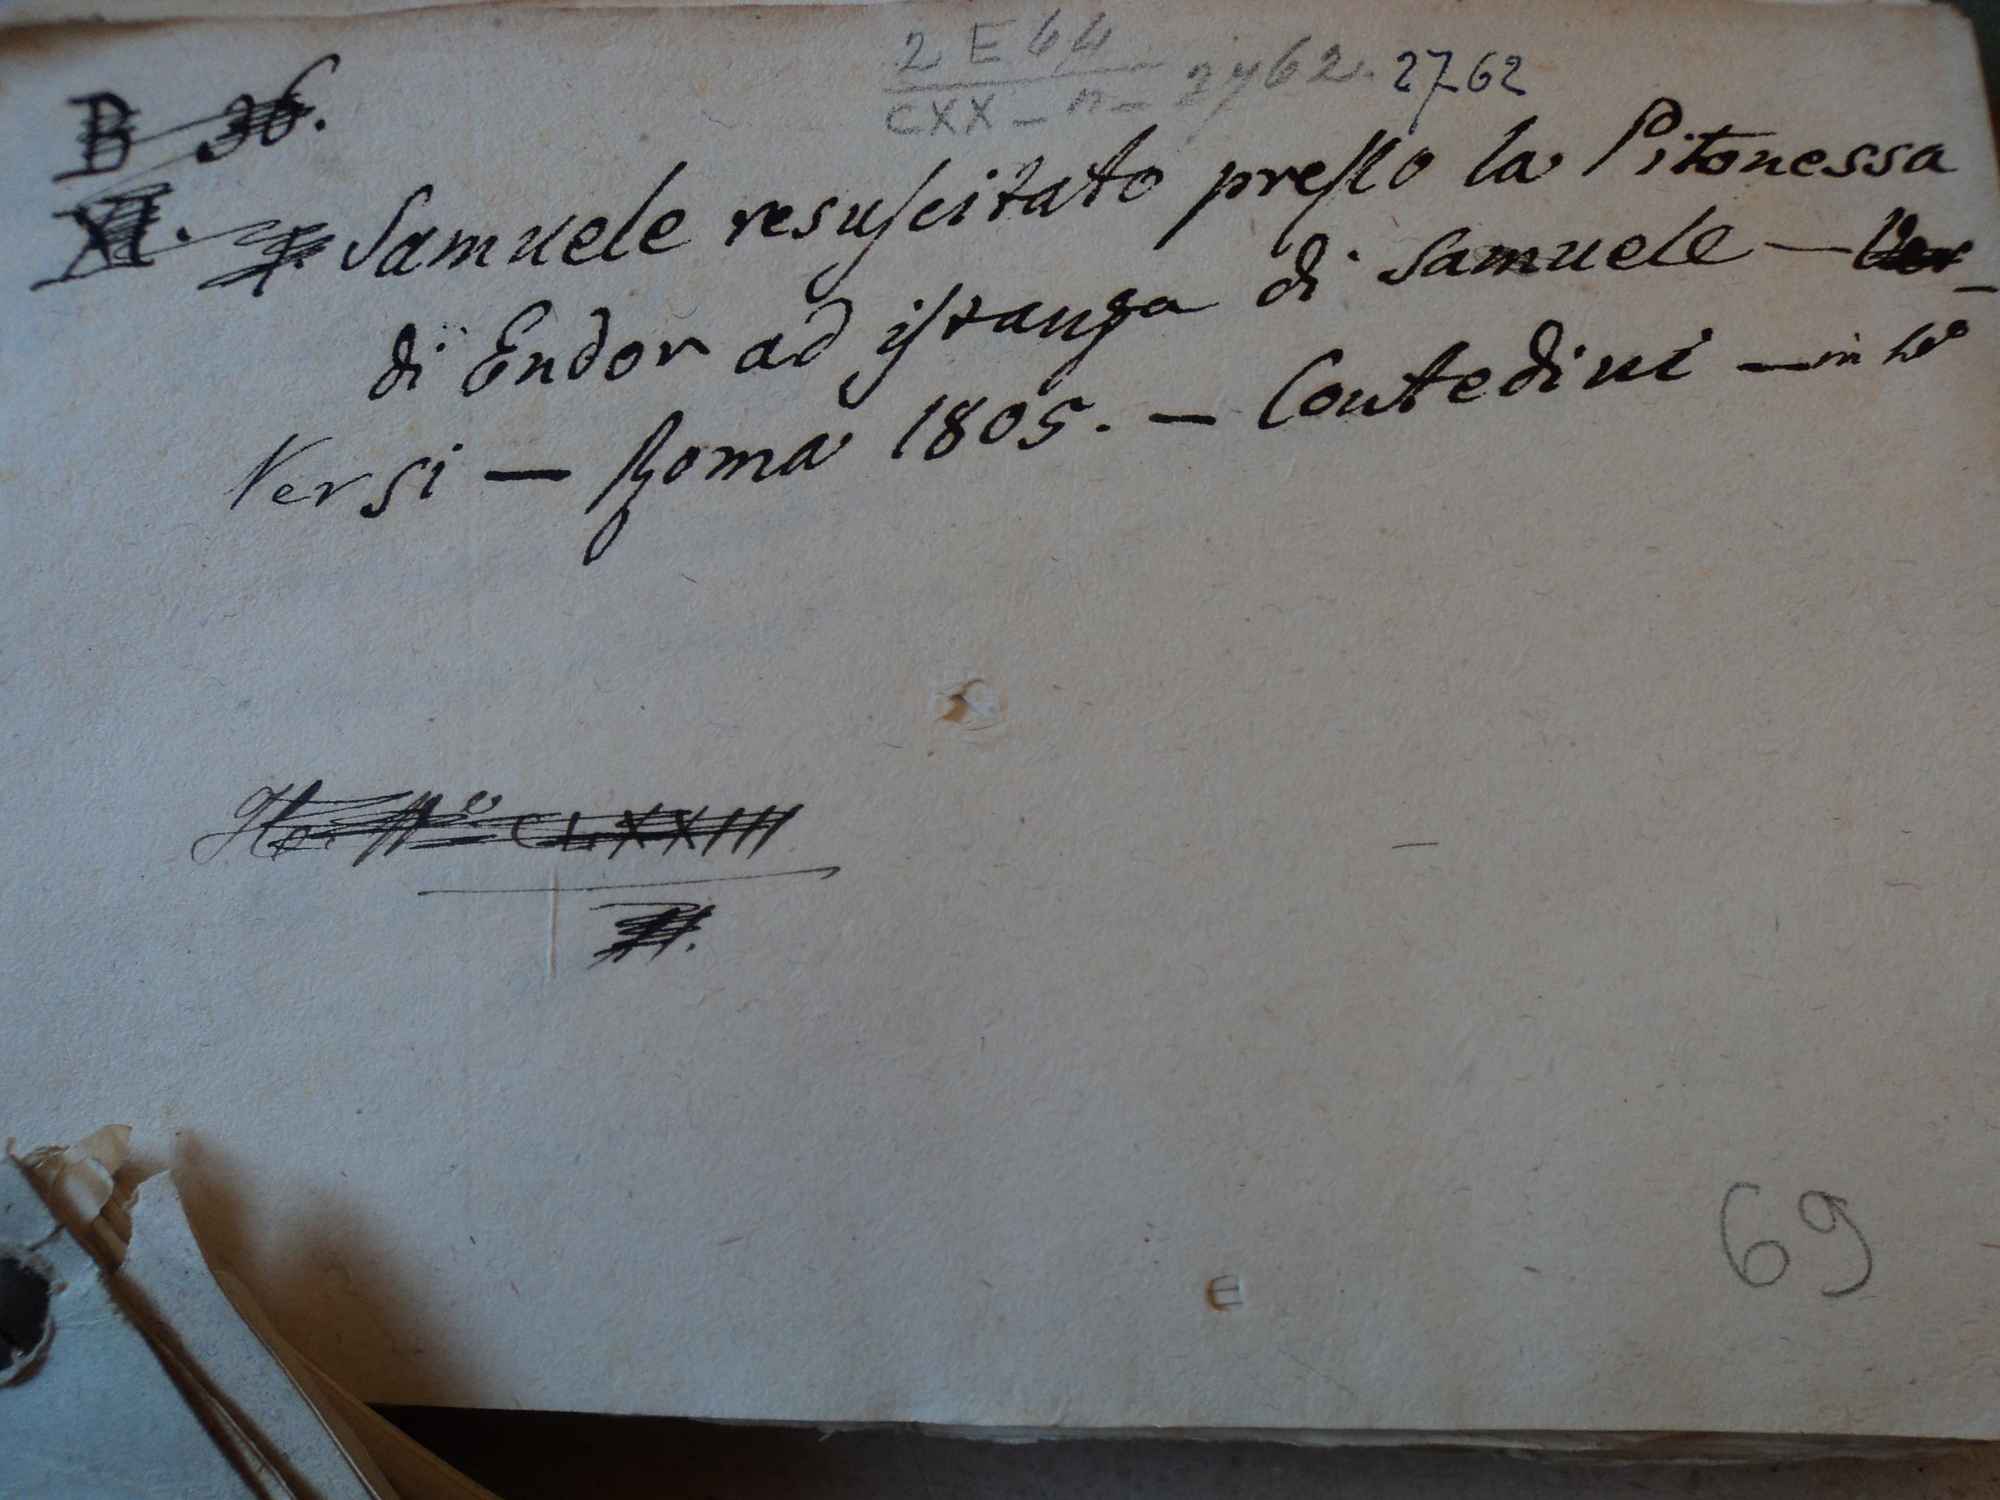 2 E 44
CXX - n - 2762. 2762
B 36.
XI. Samuele resuscitato presso la Pitonessa
di Endor ad istanza di Samuele —
Versi — Roma 1805. — Contedini — in 4º
Nº CLXXIII
E
69